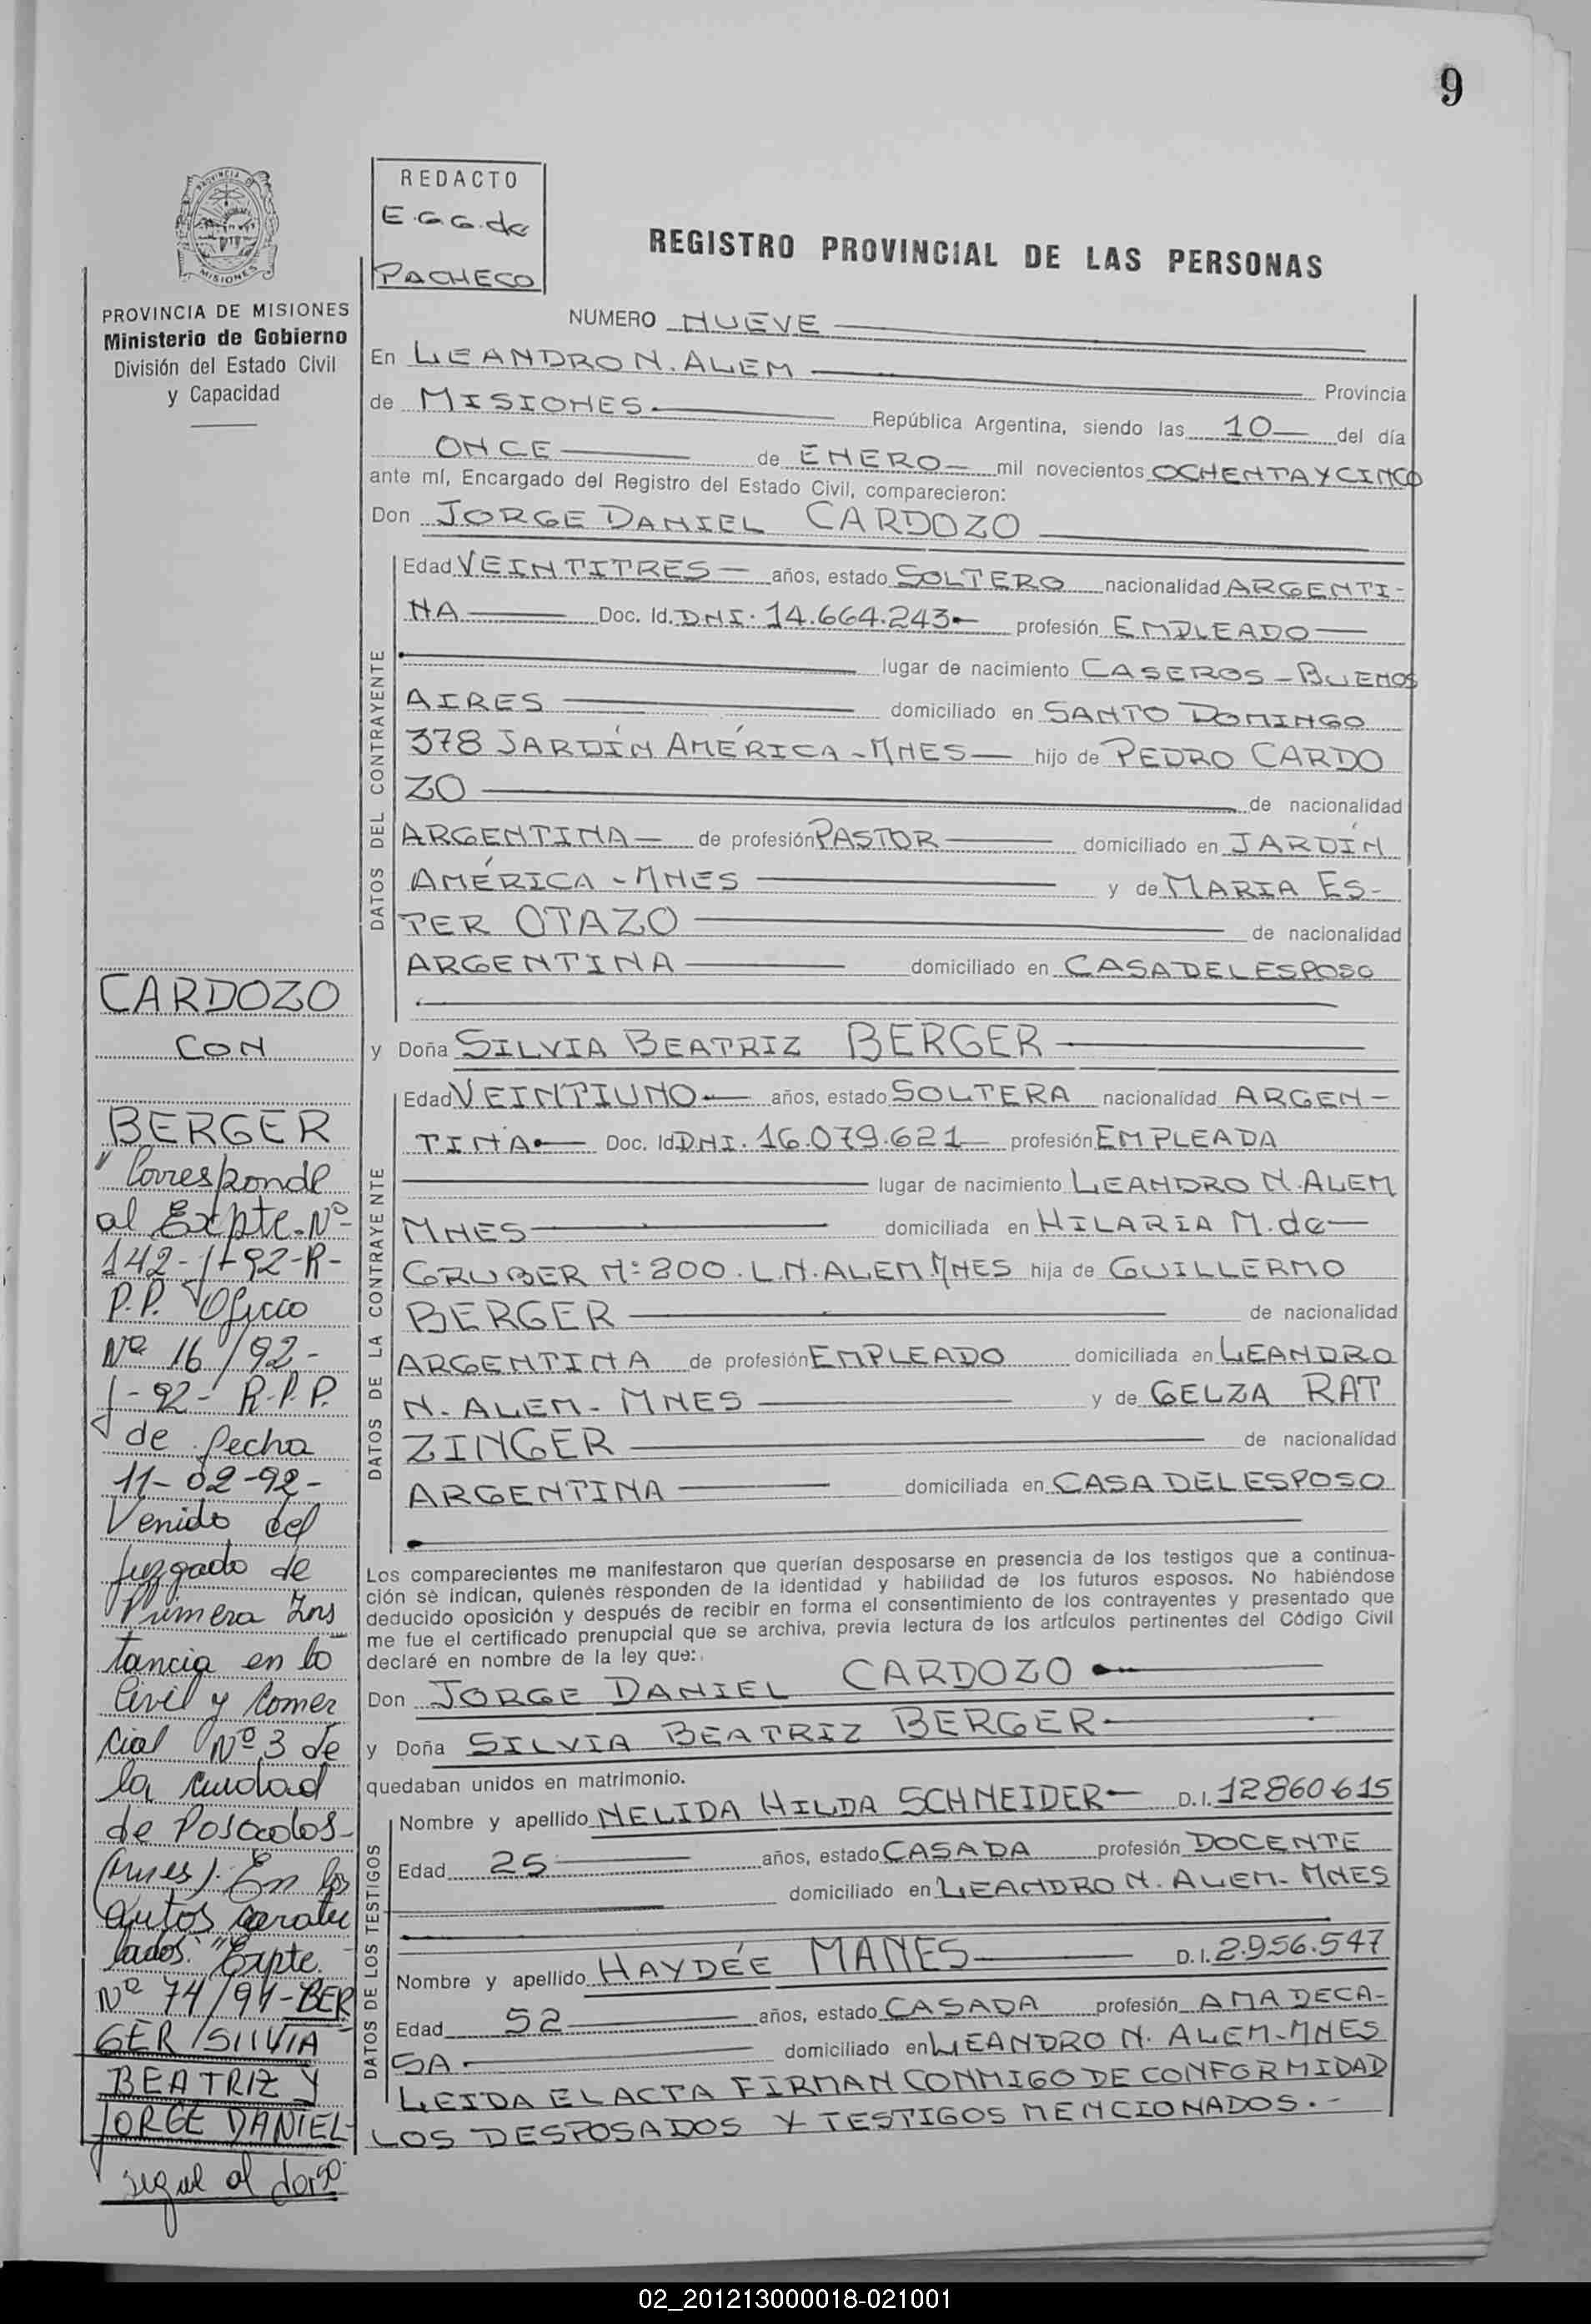 9
PROVINCIA DE
MISIONES
REDACTO
E.G.G. de
PACHECO
REGISTRO PROVINCIAL DE LAS PERSONAS
PROVINCIA DE MISIONES
Ministerio de Gobierno
División del Estado Civil
y Capacidad
NUMERO NUEVE
En LEANDRO N. ALEM Provincia
de MISIONES República Argentina, siendo las 10 del día
ONCE de ENERO mil novecientos OCHENTA Y CINCO
ante mí, Encargado del Registro del Estado Civil, comparecieron:
Don JORGE DANIEL CARDOZO
DATOS DEL CONTRAYENTE
Edad VEINTITRES años, estado SOLTERO nacionalidad ARGENTI-
NA Doc. Id. DNI. 14.664.243 profesión EMPLEADO
lugar de nacimiento CASEROS - BUENOS
AIRES domiciliado en SANTO DOMINGO
378 JARDÍN AMÉRICA - MNES hijo de PEDRO CARDO
ZO de nacionalidad
ARGENTINA de profesión PASTOR domiciliado en JARDÍN
AMÉRICA - MNES y de MARIA ES-
TER OTAZO de nacionalidad
ARGENTINA domiciliado en CASA DEL ESPOSO
y Doña SILVIA BEATRIZ BERGER
DATOS DE LA CONTRAYENTE
Edad VEINTIUNO años, estado SOLTERA nacionalidad ARGEN-
TINA Doc. Id. DNI. 16.079.621 profesión EMPLEADA
lugar de nacimiento LEANDRO N. ALEM
MNES domiciliada en HILARIA M. de
GRUBER Nº 200. L.N. ALEM MNES hija de GUILLERMO
BERGER de nacionalidad
ARGENTINA de profesión EMPLEADO domiciliada en LEANDRO
N. ALEM - MNES y de GELZA RAT
ZINGER de nacionalidad
ARGENTINA domiciliada en CASA DEL ESPOSO
Los comparecientes me manifestaron que querían desposarse en presencia de los testigos que a continua-
ción se indican, quienes responden de la identidad y habilidad de los futuros esposos. No habiéndose
deducido oposición y después de recibir en forma el consentimiento de los contrayentes y presentado que
me fue el certificado prenupcial que se archiva, previa lectura de los artículos pertinentes del Código Civil
declaré en nombre de la ley que:
Don JORGE DANIEL CARDOZO
y Doña SILVIA BEATRIZ BERGER
quedaban unidos en matrimonio.
DATOS DE LOS TESTIGOS
Nombre y apellido NELIDA HILDA SCHNEIDER D.I. 12860615
Edad 25 años, estado CASADA profesión DOCENTE
domiciliado en LEANDRO N. ALEM - MNES
Nombre y apellido HAYDÉE MANES D.I. 2.956.547
Edad 52 años, estado CASADA profesión AMA DE CA-
SA domiciliado en LEANDRO N. ALEM - MNES
LEIDA EL ACTA FIRMAN CONMIGO DE CONFORMIDAD
LOS DESPOSADOS Y TESTIGOS MENCIONADOS.-
CARDOZO
CON
BERGER
"Corresponde
al Expte. Nº
142-J-92-R-
P.P. Oficio
Nº 16/92-
J-92- R.P.P.
de fecha
11-02-92-
Venido del
Juzgado de
Primera Ins
tancia en lo
Civil y Comer
cial Nº 3 de
la ciudad
de Posadas-
(Mnes). En los
autos caratu
lados: "Expte.
Nº 74/91-BER
GER SILVIA
BEATRIZ Y
JORGE DANIEL
segue al dorso
02_201213000018-021001